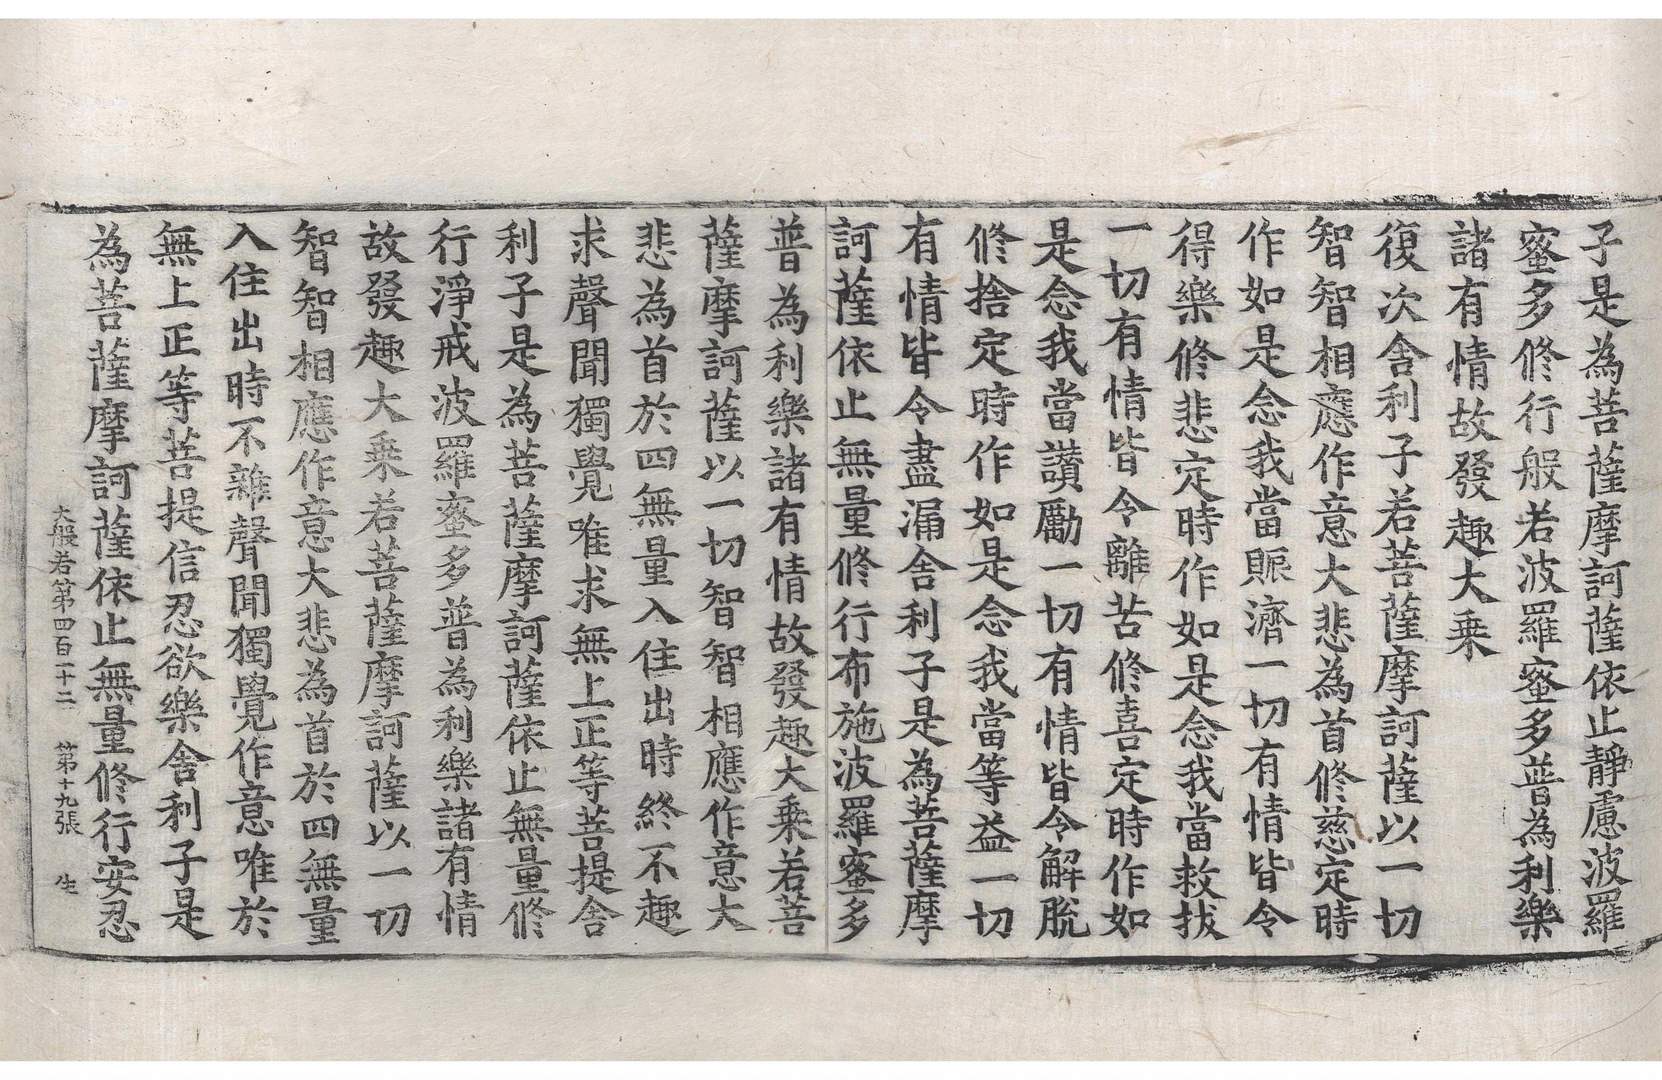 子是為菩薩摩訶薩依止靜慮波羅
蜜多修行般若波羅蜜多普為利樂
諸有情故發趣大乘
復次舍利子若菩薩摩訶薩以一切
智智相應作意大悲為首修慈定時
作如是念我當賑濟一切有情皆令
得樂修悲定時作如是念我當救拔
一切有情皆令離苦修喜定時作如
是念我當讚勵一切有情皆令解脫
修捨定時作如是念我當等益一切
有情皆令盡漏舍利子是為菩薩摩
訶薩依止無量修行布施波羅蜜多
普為利樂諸有情故發趣大乘若菩
薩摩訶薩以一切智智相應作意大
悲為首於四無量入住出時終不趣
求聲聞獨覺唯求無上正等菩提舍
利子是為菩薩摩訶薩依止無量修
行淨戒波羅蜜多普為利樂諸有情
故發趣大乘若菩薩摩訶薩以一切
智智相應作意大悲為首於四無量
入住出時不雜聲聞獨覺作意唯於
無上正等菩提信忍欲樂舍利子是
為菩薩摩訶薩依止無量修行安忍
大般若第四百一十二 第十九張 生